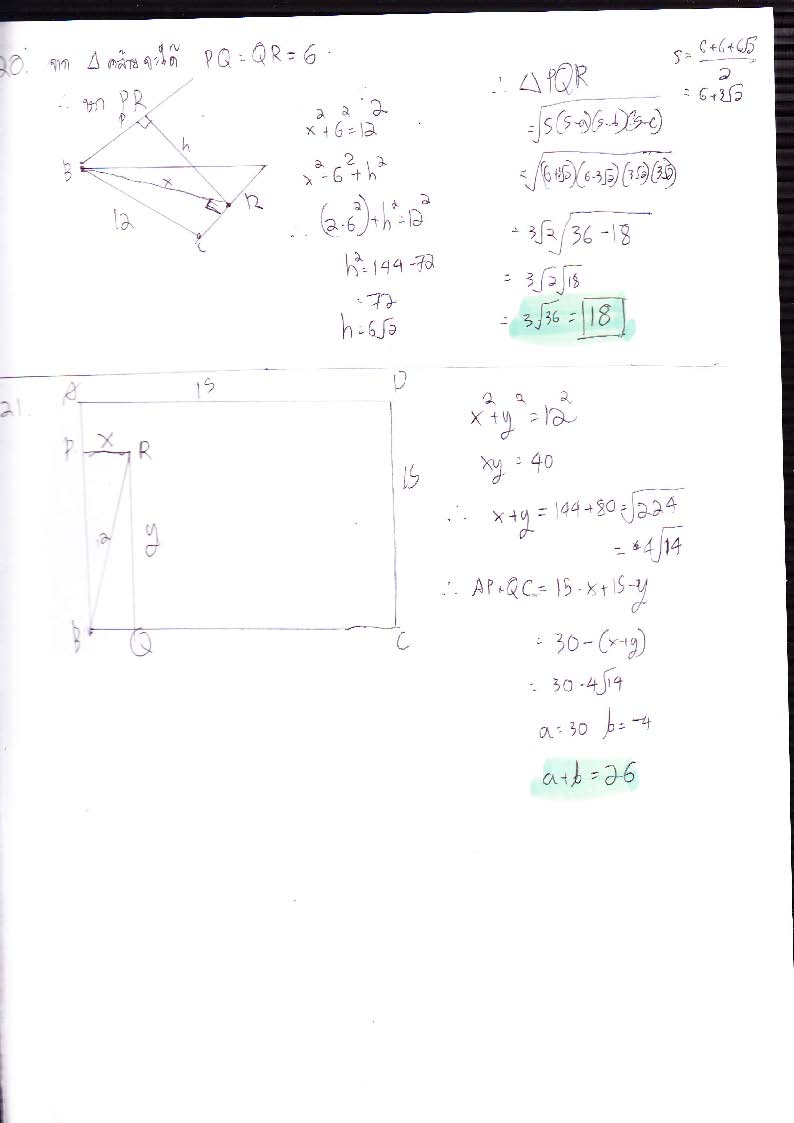 20. จาก Δ คล้ายจะได้ PQ = QR = 6
∴ หา PR
P
h
B
x
R
12
C
x² + 6² = 12²
x² = 6² + h²
∴ (2·6²) + h² = 12²
h² = 144 - 72
= 72
h = 6√2
∴ Δ PQR
= √S(S-a)(S-b)(S-c)
= √(6+3√2)(6-3√2)(3√2)(3√2)
= 3√2 √36 - 18
= 3√2 √18
= 3√36 = 18
2
= 6+3√2
21.
A 15 D
P x R
15
12 y
B Q C
x² + y² = 12²
xy = 40
∴ x+y = 144+80 = √224
= 4√14
∴ AP+QC = 15-x+15-y
= 30-(x+y)
= 30-4√14
a = 30 b = -4
a+b = 26